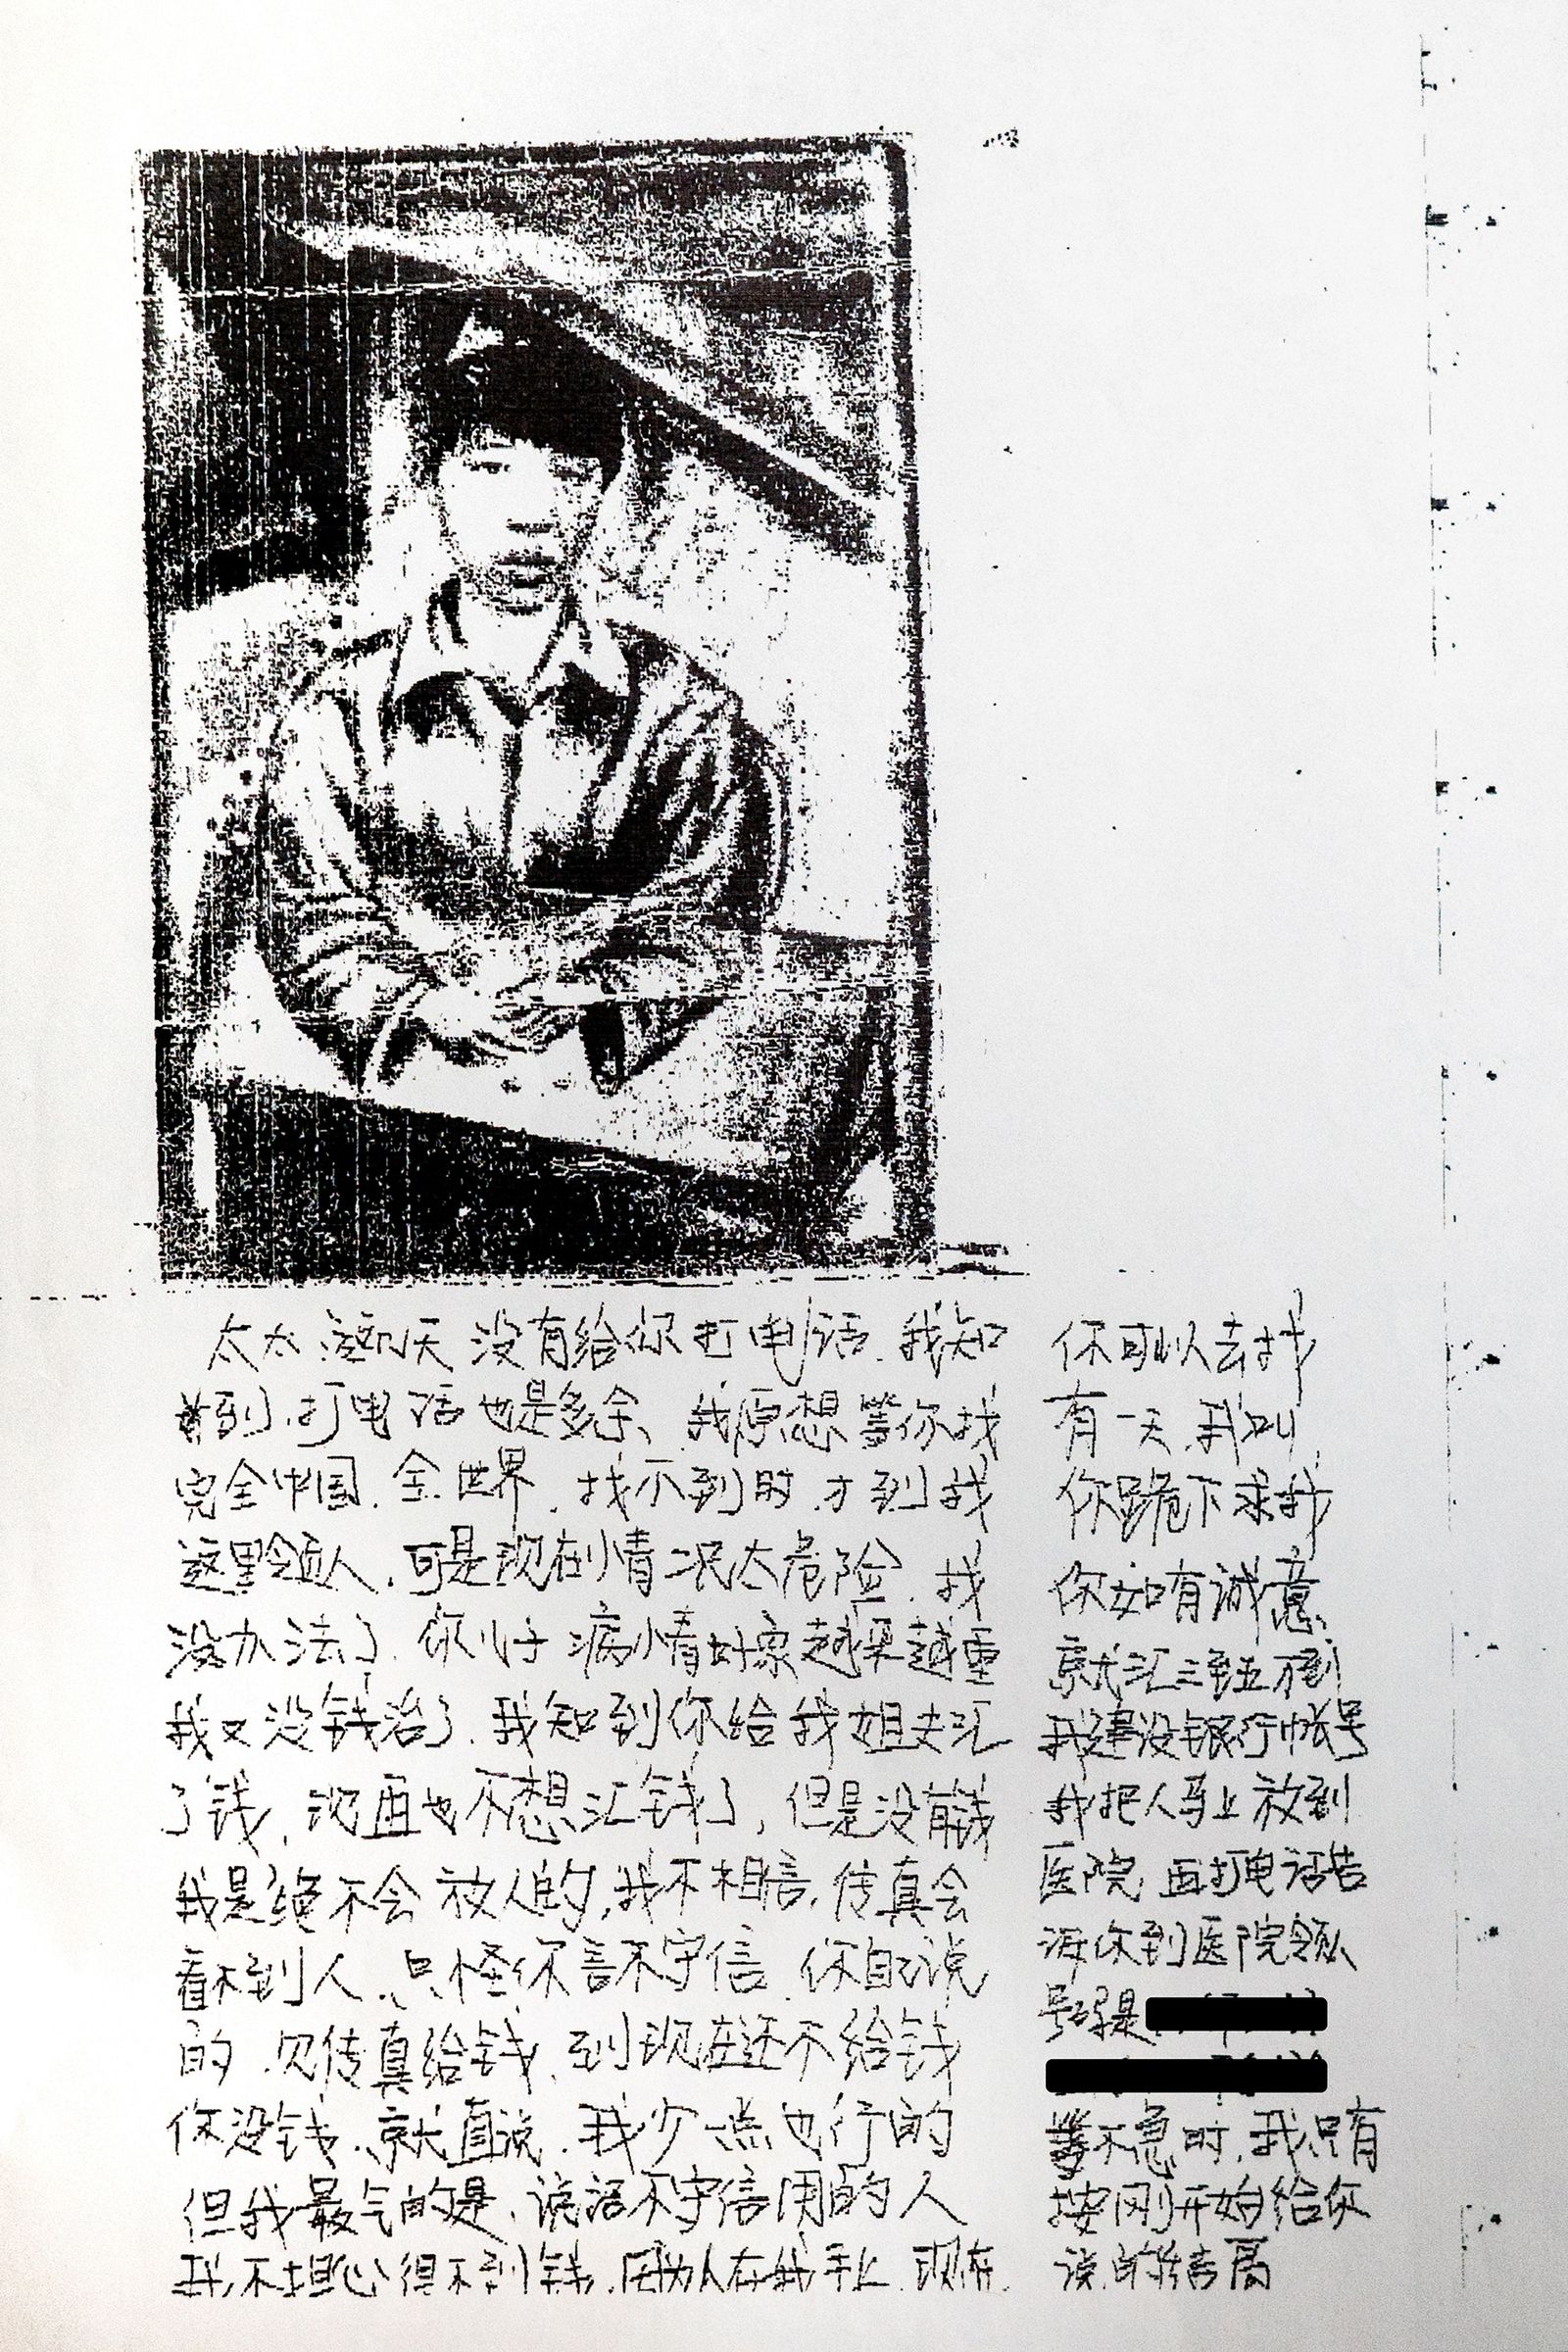 太太.这两天没有给你打电话.我知
到.打电话也是多余、我原想等你找
完全中国.全世界.找不到时.才到我
这里领人.可是现在情况太危险.我
没办法了.你儿子病情好象越来越重
我又没钱治了.我知到你给我姐夫汇
了钱,现再也不想汇钱了,但是没有钱
我是绝不会放人的,我不相信.传真会
看不到人.只怪你言不守信.你自己说
的.见传真给钱.到现在还不给钱
你没钱.就直说.我少一点也行的
但我最气的是.说话不守信用的人
我不担心得不到钱.因为人在我手上.现在.
你可以去找
有一天.我叫
你跪下求我
你如有诚意
就汇三至五万到
我建设银行帐号
我把人马上放到
医院.再打电话告
诉你到医院领
号码是
等不急时.我只有
按刚开始给你
说的结局